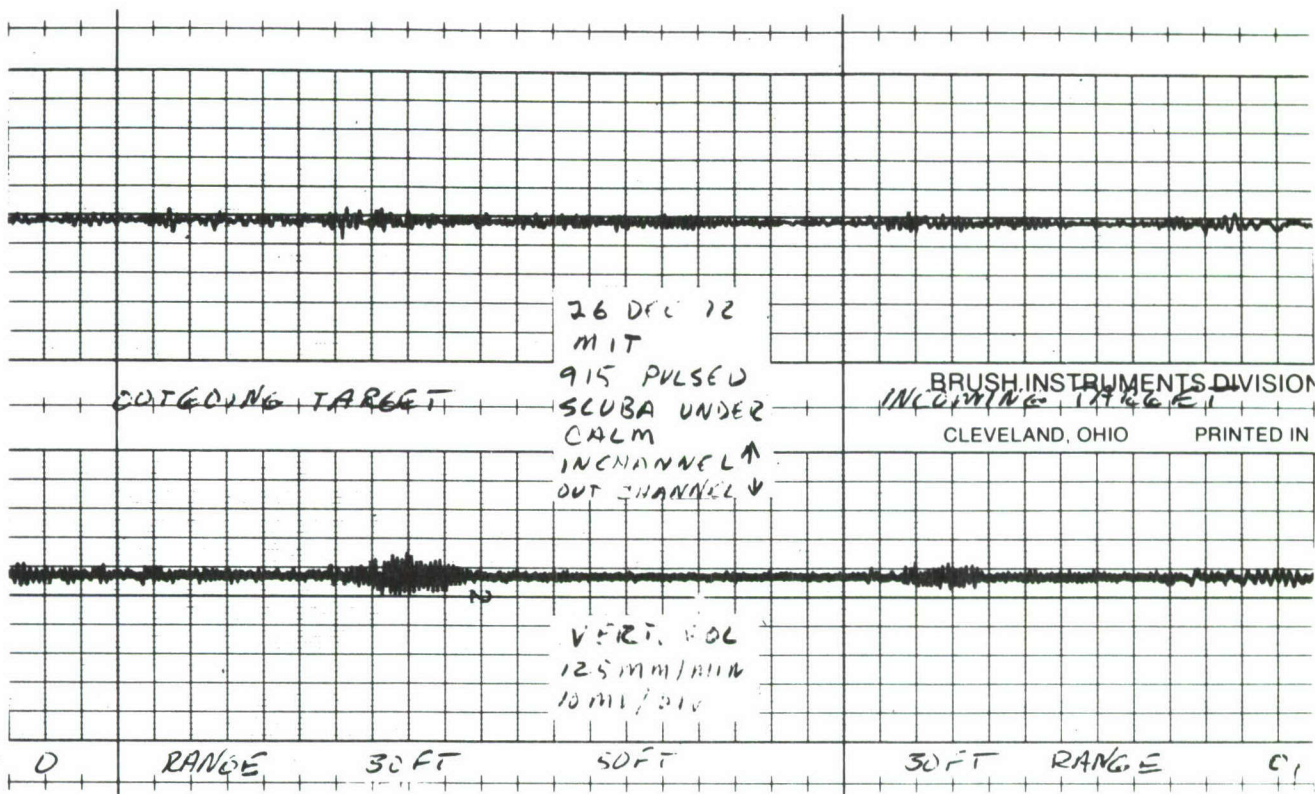 26 DEC 72
MIT
915 PULSED
SCUBA UNDER
CALM
INCHANNEL ↑
OUT CHANNEL ↓
OUTGOING TARGET
BRUSH INSTRUMENTS DIVISION
INCOMING TARGET
CLEVELAND, OHIO PRINTED IN
2
VERT. POL
125 MM/MIN
10 MV/DIV
0 RANGE 30FT 50FT 30FT RANGE